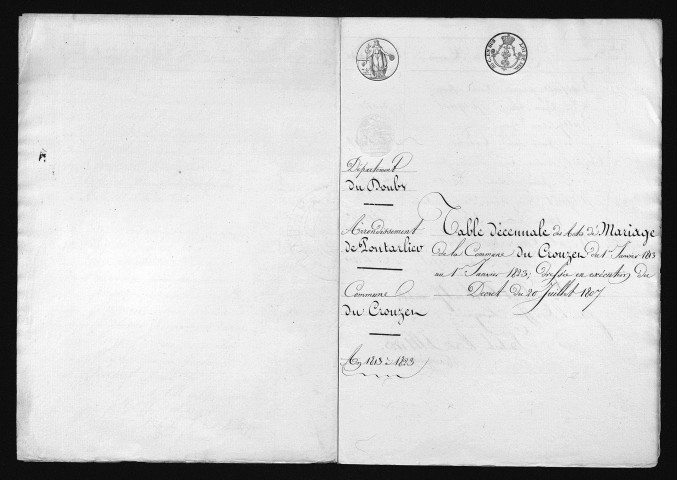 Département
du Doubs
Arrondissement
de Pontarlier
Commune
du Crouzet
An 1813 à 1823
Table décennale des Actes de Mariage
de la Commune du Crouzet du 1er Janvier 1813
au 1er Janvier 1823; dressée en exécution du
Décret du 20 Juillet 1807